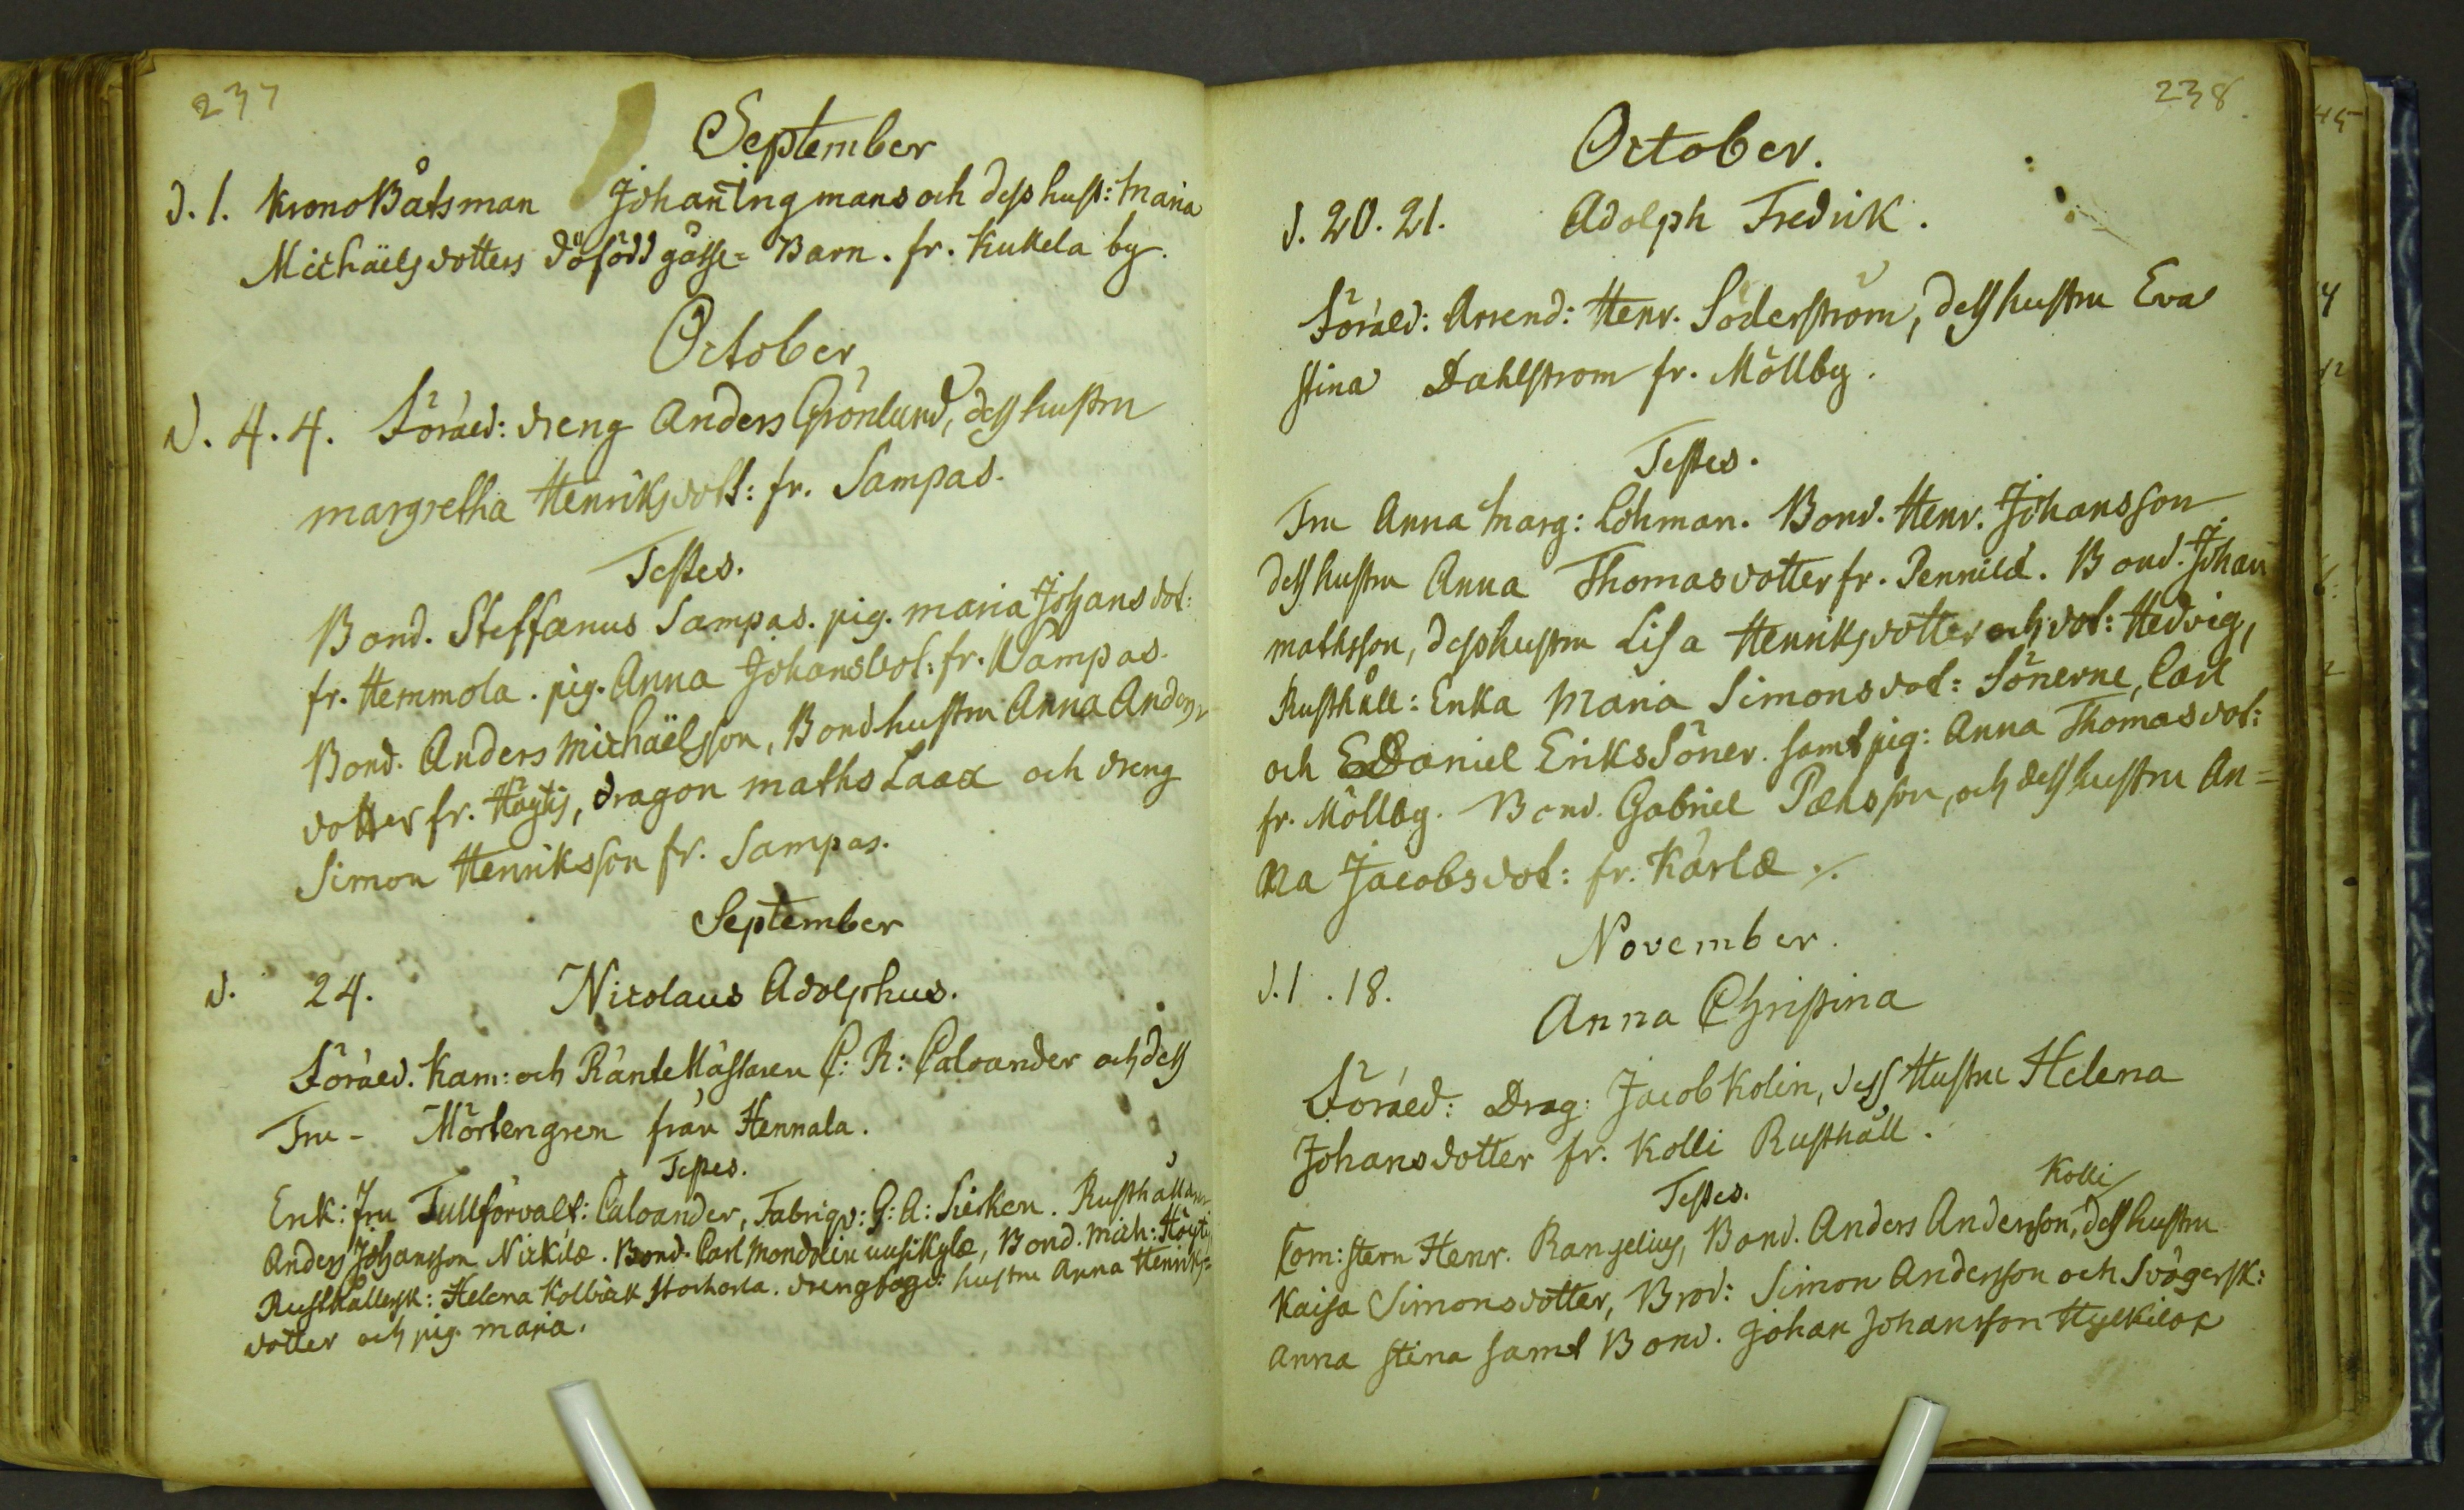 237
September
d. 1. KronoBåtsman Johan Ingmans och dess hust: Maria
Michäelsdotters döfödd gåsse=Barn. fr. Kukela by.
October
d. 4. 4. Föräld: dreng Anders Grönlund, dess hustru
margretha Henriksdott: fr. Sampas.
Testes.
Bond. Steffanus Sampas. pig. maria Johansdot:
fr. Hemmola. pig. Anna Johansdot: fr. Sampas.
Bond. Anders Michäelsson, Bondhustru Anna Anders
dotter fr. Höytis, dragon maths Laax och dreng
Simon Henriksson fr. Sampas.
September
d. 24. Nicolaus Adolphus.
Föräld. Kam: och Räntemästaren C: R: Caloander och dess
Fru - Mörtengren från Hennala.
Testes.
Enk: Fru Tullförvalt: Caloander, Fabriqv: G: A: Sierken. Rusthållaren
Anders Johansson Nickilæ. Bond. Carl Mondolin uusikylæ, Bond. Mich: Höyti
Rusthållersk: Helena Kolbäck Storhorla. drengfogd: hustru Anna Henriks=
dotter och pig. maria.
238.
October.
d. 20. 21. Adolph Fredrik.
Föräld: Arrend: Henr. Söderström, dess hustru Eva
stina Dahlstrom fr. Möllby.
Testes.
Fru Anna Marg: Lohman. Bond. Henr. Johansson
dess hustru Anna Thomasdotter fr. Pennilä. Bond. Johan
mathsson, dess hustru Lisa Henriksdotter och dot: Hedvig,
Rusthåll: Enka Maria Simonsdot: Sönerne, Carl
och Daniel Eriks Söner. samt pig: Anna Thomasdot:
fr. Möllby. Bond. Gabriel Pæhrsson, och dess hustru An=
na Jacobsdot: fr. Kärlæ ./.
November.
d. 1. 18.
Anna Christina
Föräld: Drag: Jacob Kolin, dess Hustru Helena
Johansdotter fr. Kolli Rusthåll.
Testes.
Kolli
Com: stern Henr. Rangelius, Bond. Anders Andersson, dess hustru
Kaisa Simonsdotter, Brod: Simon Andersson och Svägersk:
Anna stina samt Bond. Johan Johansson Hylkilæ